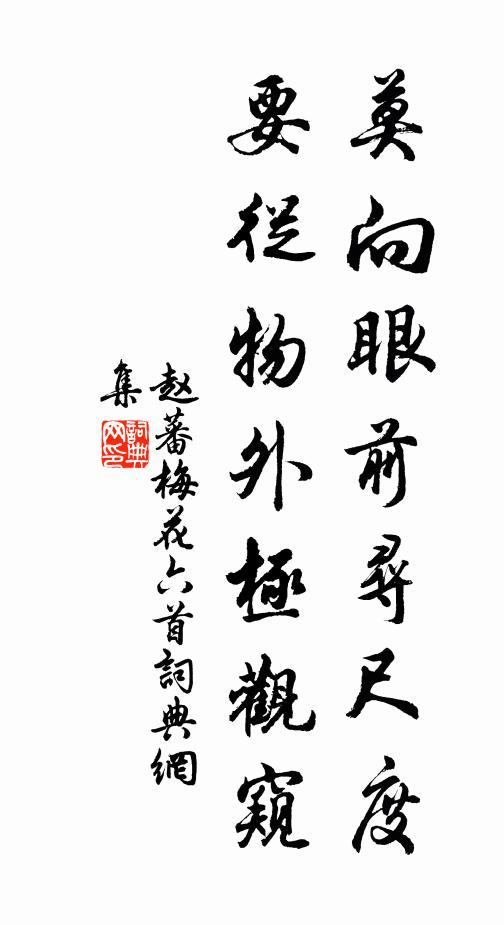 莫向眼前尋尺度
要從物外極觀窺
赵蕃梅花六首詞典網
集
詞典网印